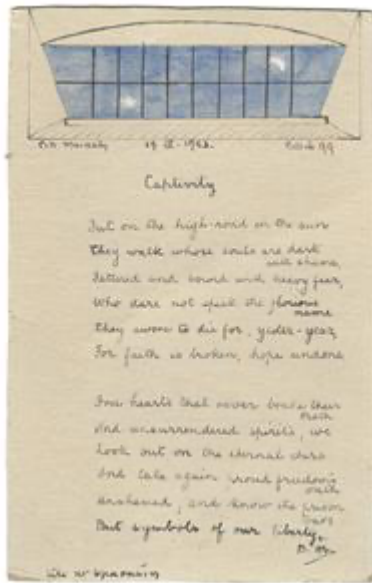 Captivity
Out on the high-road in the sun
They walk whose souls are dark
with shame,
Fettered and bound with heavy fear,
Who dare not speak the glorious
name
They swore to die for, yester-year,
For faith is broken, hope undone
Free hearts that never broke their
oath
And unsurrendered spirits, we
Look out on the eternal stars
And take again proud freedom's
oath
and know the prison
bars
But symbols of our liberty.